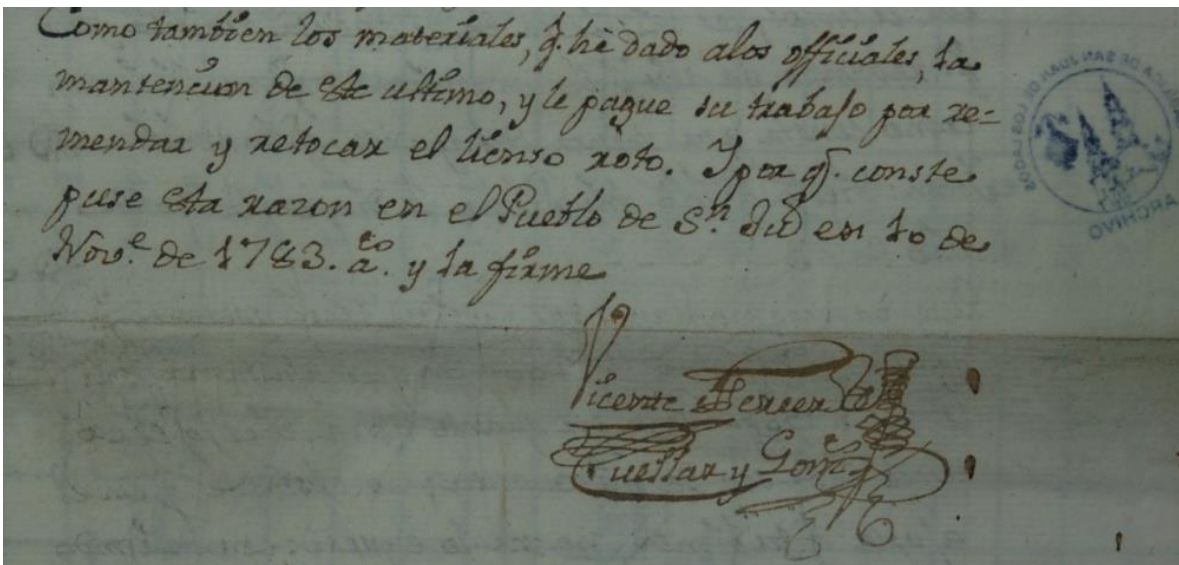 Como tambien los materiales, q.e hè dado alos officiales, la
mantencion de este ultimo, y le pague su trabajo por re=
mendar y retocar el lienso roto. Y por q.e conste
puse esta razon en el Pueblo de S.n en 10 de
Nov.e de 1783. a.s y la firme
Vicente
Cuellar y Gom.z
ARCHIVO